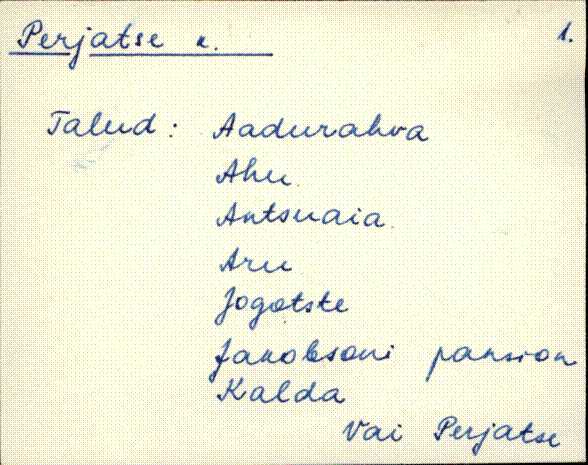 Perjatse k. 1.
Talud: Aadurahva
Ahu
Antsuaia
Aru
Jogotste
Jakobsoni pansion
Kalda
Vai Perjatse